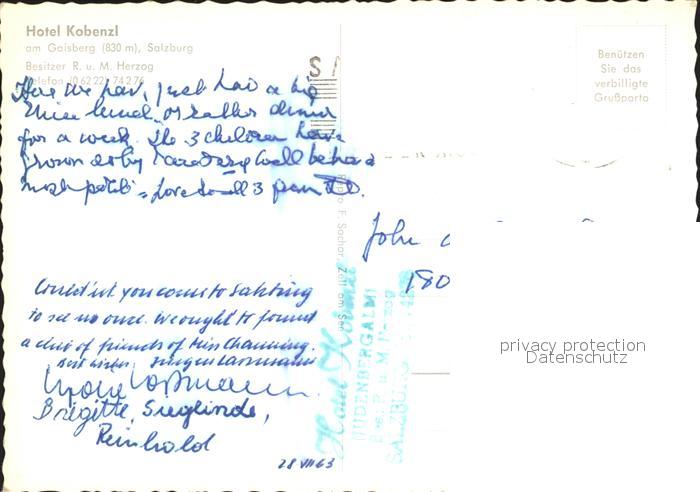 Hotel Kobenzl
am Gaisberg (830 m), Salzburg
Besitzer R. u. M. Herzog
Telefon (0 62 22) 74 2 76
Benützen
Sie das
verbilligte
Grußporto
Here we have just had a big
nice lunch or rather dinner
for a week. The 3 children have
grown & very well behaved
most polite = Love to all 3 from
John
180
Couldn't you come to Salzburg
to see us once. We ought to found
a club of friends of Miss Channing.
Best wishes Jürgen Lassmann
Lassmann
Brigitte, Sieglinde,
Reinhold
28 VIII 63
Foto F. Sochor, Zell am See
Hotel Kobenzl
JUDENBERGALM
Bes. R. u. M. Herzog
SALZBURG
privacy protection
Datenschutz